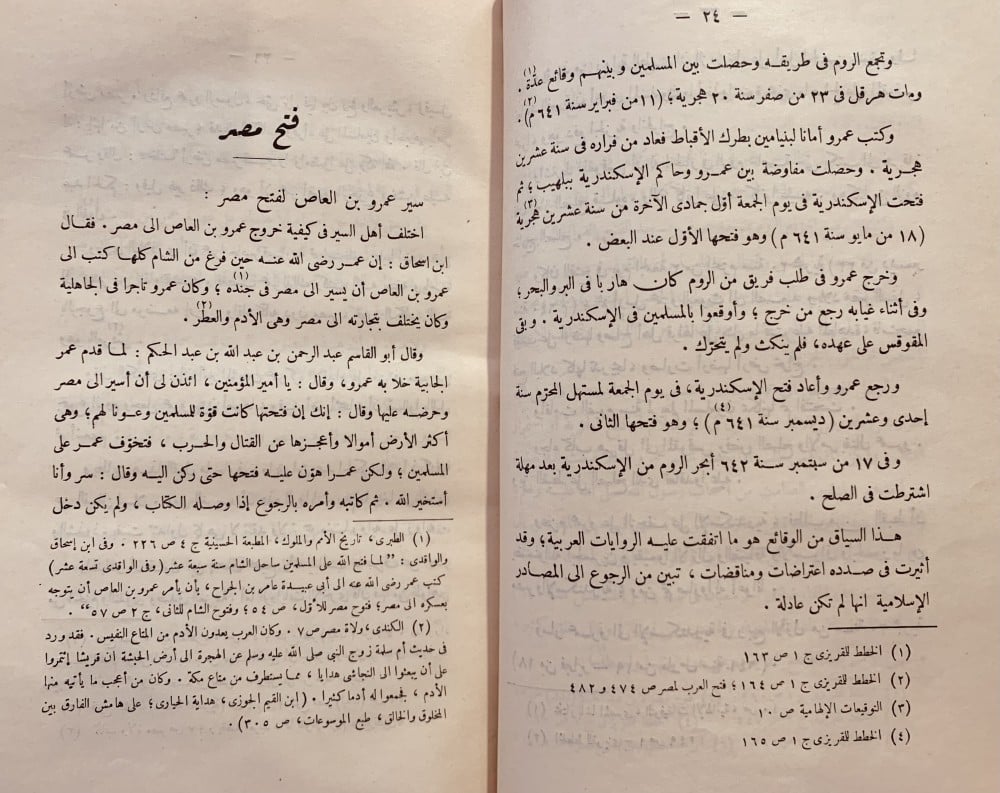 — ٢٤ —
وتجمع الروم فى طريقه وحصلت بين المسلمين وبينهم وقائع عدّة (١) .
ومات هرقل فى ٢٣ من صفر سنة ٢٠ هجرية؛ (١١ من فبراير سنة ٦٤١ م) (٢) .
وكتب عمرو أمانا لبنيامين بطرك الأقباط فعاد من فراره فى سنة عشرين
هجرية . وحصلت مفاوضة بين عمرو وحاكم الإسكندرية ببلهيب؛ ثم
فتحت الإسكندرية فى يوم الجمعة أوّل جمادى الآخرة من سنة عشرين هجرية (٣)
(١٨ من مايو سنة ٦٤١ م) وهو فتحها الأوّل عند البعض .
وخرج عمرو فى طلب فريق من الروم كان هاربا فى البر والبحر؛
وفى أثناء غيابه رجع من خرج؛ وأوقعوا بالمسلمين فى الإسكندرية . وبقى
المقوقس على عهده، فلم ينكث ولم يتحرّك .
ورجع عمرو وأعاد فتح الإسكندرية، فى يوم الجمعة لمستهل المحرّم سنة
إحدى وعشرين (ديسمبر سنة ٦٤١ م) (٤)؛ وهو فتحها الثانى .
وفى ١٧ من سبتمبر سنة ٦٤٢ أبحر الروم من الإسكندرية بعد مهلة
اشترطت فى الصلح .
هذا السياق من الوقائع هو ما اتفقت عليه الروايات العربية؛ وقد
أثيرت فى صدده اعتراضات ومناقضات، تبين من الرجوع الى المصادر
الإسلامية انها لم تكن عادلة .
(١) الخطط للقريزى ج ١ ص ١٦٣
(٢) الخطط للقريزى ج ١ ص ١٦٤؛ فتح العرب لمصر ص ٤٧٤ و ٤٨٢
(٣) التوقيعات الإلهامية ص ١٠
(٤) الخطط للقريزى ج ١ ص ١٦٥
فتح مصر
سير عمرو بن العاص لفتح مصر :
اختلف أهل السير فى كيفية خروج عمرو بن العاص الى مصر . فقال
ابن اسحاق : إن عمر رضى الله عنه حين فرغ من الشام كلها كتب الى
عمرو بن العاص أن يسير الى مصر فى جنده (١)؛ وكان عمرو تاجرا فى الجاهلية
وكان يختلف بتجارته الى مصر وهى الأدم والعطر (٢) .
وقال أبو القاسم عبد الرحمن بن عبد الله بن عبد الحكم : لما قدم عمر
الجابية خلا به عمرو، وقال : يا أمير المؤمنين، ائذن لى أن أسير الى مصر
وحرضه عليها وقال : إنك إن فتحتها كانت قوّة للمسلمين وعونا لهم؛ وهى
أكثر الأرض أموالا وأعجزها عن القتال والحرب، فتخوّف عمر على
المسلمين؛ ولكن عمرا هوّن عليه فتحها حتى ركن اليه وقال : سر وأنا
أستخير الله . ثم كاتبه وأمره بالرجوع إذا وصله الكتاب، ولم يكن دخل
(١) الطبرى، تاريخ الأمم والملوك، المطبعة الحسينية ج ٤ ص ٢٢٦ . وفى ابن إسحاق
والواقدى : "لما فتح الله على المسلمين ساحل الشام سنة سبعة عشر (وفى الواقدى تسعة عشر)
كتب عمر رضى الله عنه الى أبى عبيدة عامر بن الجراح، بأن يأمر عمرو بن العاص أن يتوجه
بعسكره الى مصر؛ فتوح مصر للأوّل، ص ٥٤؛ وفتوح الشام للثانى، ج ٢ ص ٥٧" .
(٢) الكندى، ولاة مصر ص ٧ . وكان العرب يعدون الأدم من المتاع النفيس . فقد ورد
فى حديث أم سلمة زوج النبى صلى الله عليه وسلم عن الهجرة الى أرض الحبشة أن قريشا إئتمروا
على أن يبعثوا الى النجاشى هدايا، مما يستطرف من متاع مكة . وكان من أعجب ما يأتيه منها
الأدم، فجمعوا له أدما كثيرا . (ابن القيم الجوزى، هداية الحيارى؛ على هامش الفارق بين
المخلوق والخالق، طبع الموسوعات، ص ٣٠٥) .